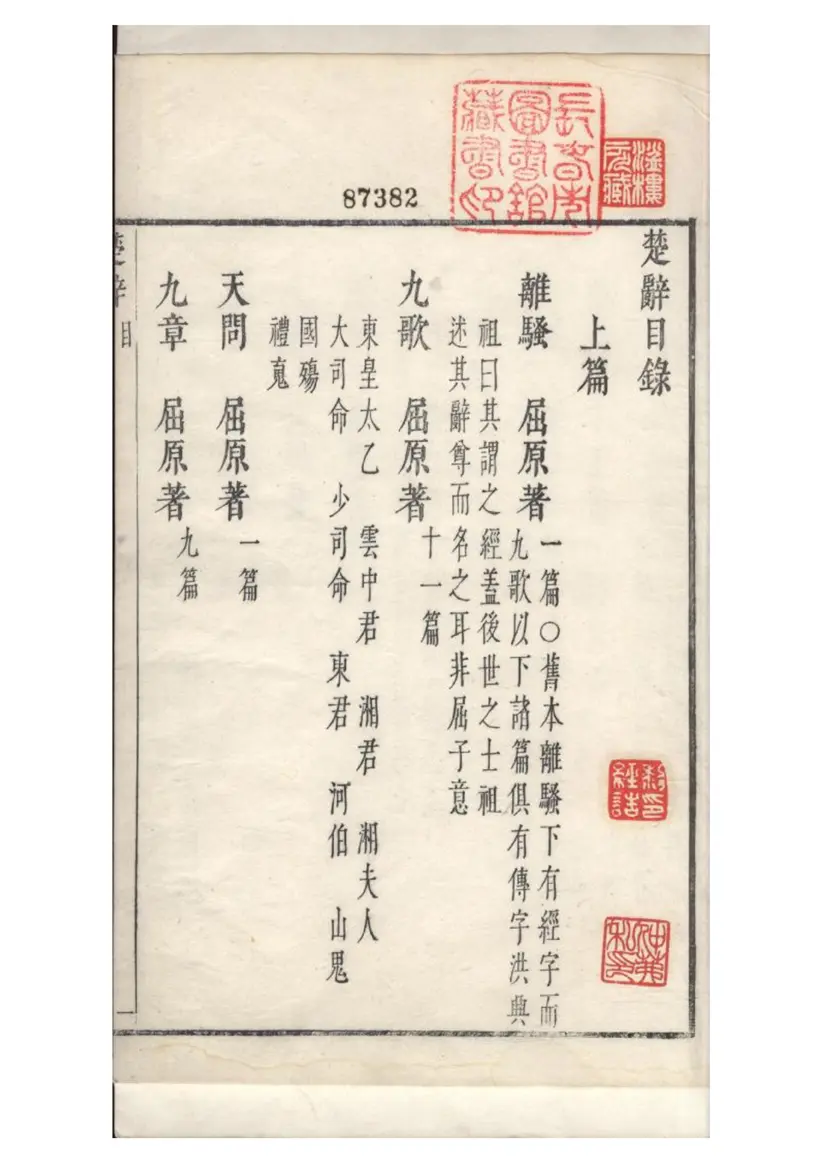 87382
長春市
圖書館
藏書印
楚辭目錄
上篇
離騷 屈原著 一篇○舊本離騷下有經字而
九歌以下諸篇俱有傳字洪興
祖曰其謂之經蓋後世之士祖
述其辭尊而名之耳非屈子意
九歌 屈原著 十一篇
東皇太乙 雲中君 湘君 湘夫人
大司命 少司命 東君 河伯 山鬼
國殤
禮䰟
天問 屈原著 一篇
九章 屈原著 九篇
楚辭 目 一